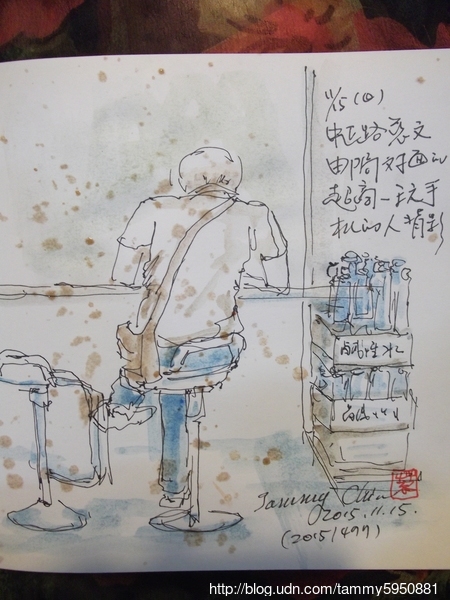 11/15 (日)
中正路
郵局对面的
超商一玩手
机的人背影
鹼性水
鹼性水
Tammy Chen
2015.11.15.
(2015/499)
http://blog.udn.com/tammy5950881